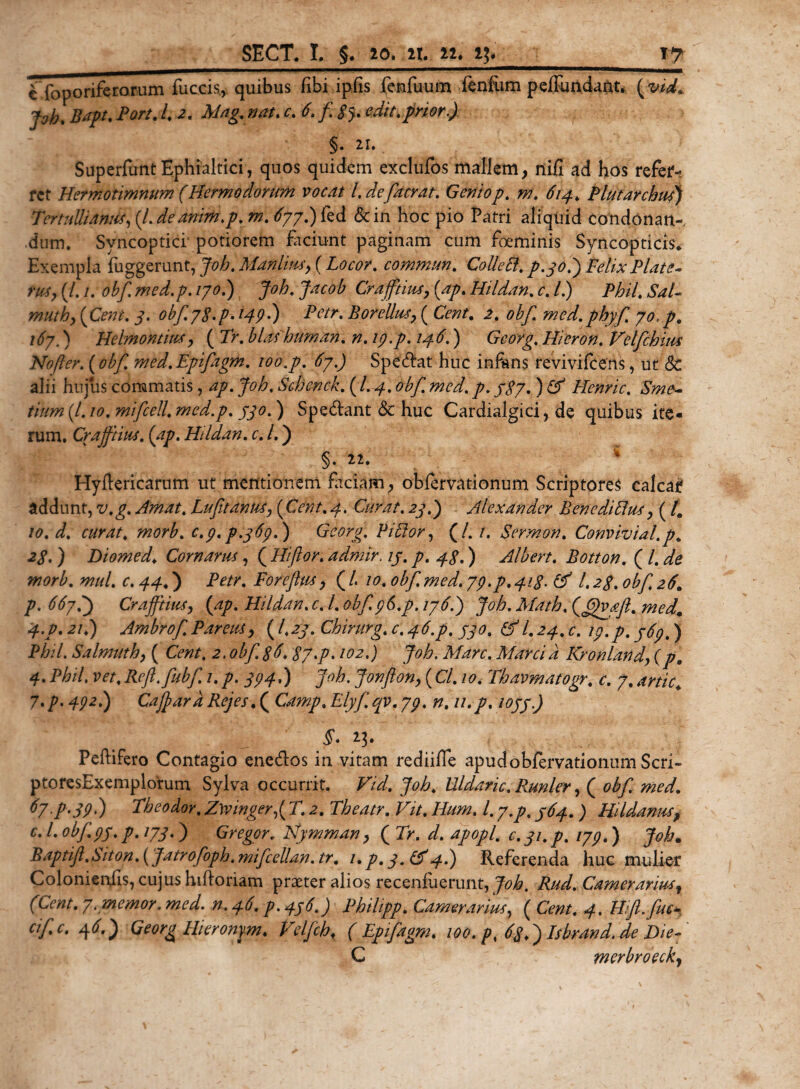 SECT. I. §. 20. 21. 22. 23. 17
è soporiferorum ſuccis, quibus ſibi ipſis ſenſuum ſenſum peſſundant. (vid.
Joh. Bapt. Port. l. 2. Mag. nat. c. 6. f. 85. edit. prior.)
§. 21.
Superſunt Ephialtici, quos quidem excluſos mallem, niſi ad hos refer-
ret Hermotimnum (Hermodorum vocat l. de ſacrat. Genio p. m. 614. Plutarchus)
Tertullianus, (l. de anim. p. m. 677.) ſed & in hoc pio Patri aliquid condonan-
dum. Syncoptici potiorem faciunt paginam cum fœminis Syncopticis.
Exempla ſuggerunt, Joh. Manlius, (Locor. commun. Collect. p. 30.) Felix Plate-
rus, (l. 1. obſ. med. p. 170.) Joh. Jacob Crafftius, (ap. Hildan. c. l.) Phil. Sal-
muth, (Cent. 3. obſ. 78. p. 149.) Petr. Borellus, (Cent. 2. obſ. med. phyſ. 70. p.
167.) Helmontius, (Tr. blas human. n. 19. p. 146.) Georg. Hieron. Velſchius
Noſter. (obſ. med. Epiſagm. 100. p. 67.) Spectat huc infans reviviſcens, ut &
alii hujus commatis, ap. Joh. Schenck. (l. 4. obſ. med. p. 587.) & Henric. Sme-
tium (l. 10. miſcell. med. p. 530.) Spectant & huc Cardialgici, de quibus ite-
rum. Crafftius. (ap. Hildan. c. l.)
§. 22.
Hyſtericarum ut mentionem faciam, obſervationum Scriptores calcar
addunt, v. g. Amat. Luſitanus, (Cent. 4. Curat. 23.) Alexander Benedictus, (l.
10. d. curat. morb. c. 9. p. 369.) Georg. Pictor, (l. 1. Sermon. Convivial. p.
28.) Diomed. Cornarus, (Hiſtor. admir. 15. p. 48.) Albert. Botton. (l. de
morb. mul. c. 44.) Petr. Foreſtus, (l. 10. obſ. med. 79. p. 418. & l. 28. obſ. 26.
p. 667.) Crafftius, (ap. Hildan. c. l. obſ. 96. p. 176.) Joh. Math. (Quæſt. med.
4. p. 21.) Ambroſ. Pareus, (l. 23. Chirurg. c. 46. p. 530. & l. 24. c. 19. p. 569.)
Phil. Salmuth, (Cent. 2. obſ. 86. 87. p. 102.) Joh. Marc. Marci à Kronland, (p.
4. Phil. vet. Reſt. ſubſ. 1. p. 394.) Joh. Jonſton, (Cl. 10. Thavmatogr. c. 7. artic.
7. p. 492.) Caſpar à Rejes. (Camp. Elyſ. qv. 79. n. 11. p. 1055.)
§. 23.
Peſtifero Contagio enectos in vitam rediiſſe apud obſervationum Scri-
ptoresExemplorum Sylva occurrit. Vid. Joh. Uldaric. Runler, (obſ. med.
67. p. 39.) Theodor. Zwinger, (T. 2. Theatr. Vit. Hum. l. 7. p. 564.) Hildanus,
c. l. obſ. 95. p. 173.) Gregor. Nymman, (Tr. d. apopl. c. 31. p. 179.) Joh.
Baptiſt. Siton. (Jatroſoph. miſcellan. tr. 1. p. 3. & 4.) Referenda huc mulier
Colonienſis, cujus hiſtoriam præter alios recenſuerunt, Joh. Rud. Camerarius,
(Cent. 7. memor. med. n. 46. p. 456.) Philipp. Camerarius, (Cent. 4. H. ſt. ſuc-
ciſ. c. 46.) Georg Hieronym. Velſch. (Epiſagm. 100. p. 68.) Isbrand. de Die-
C merbroeck,